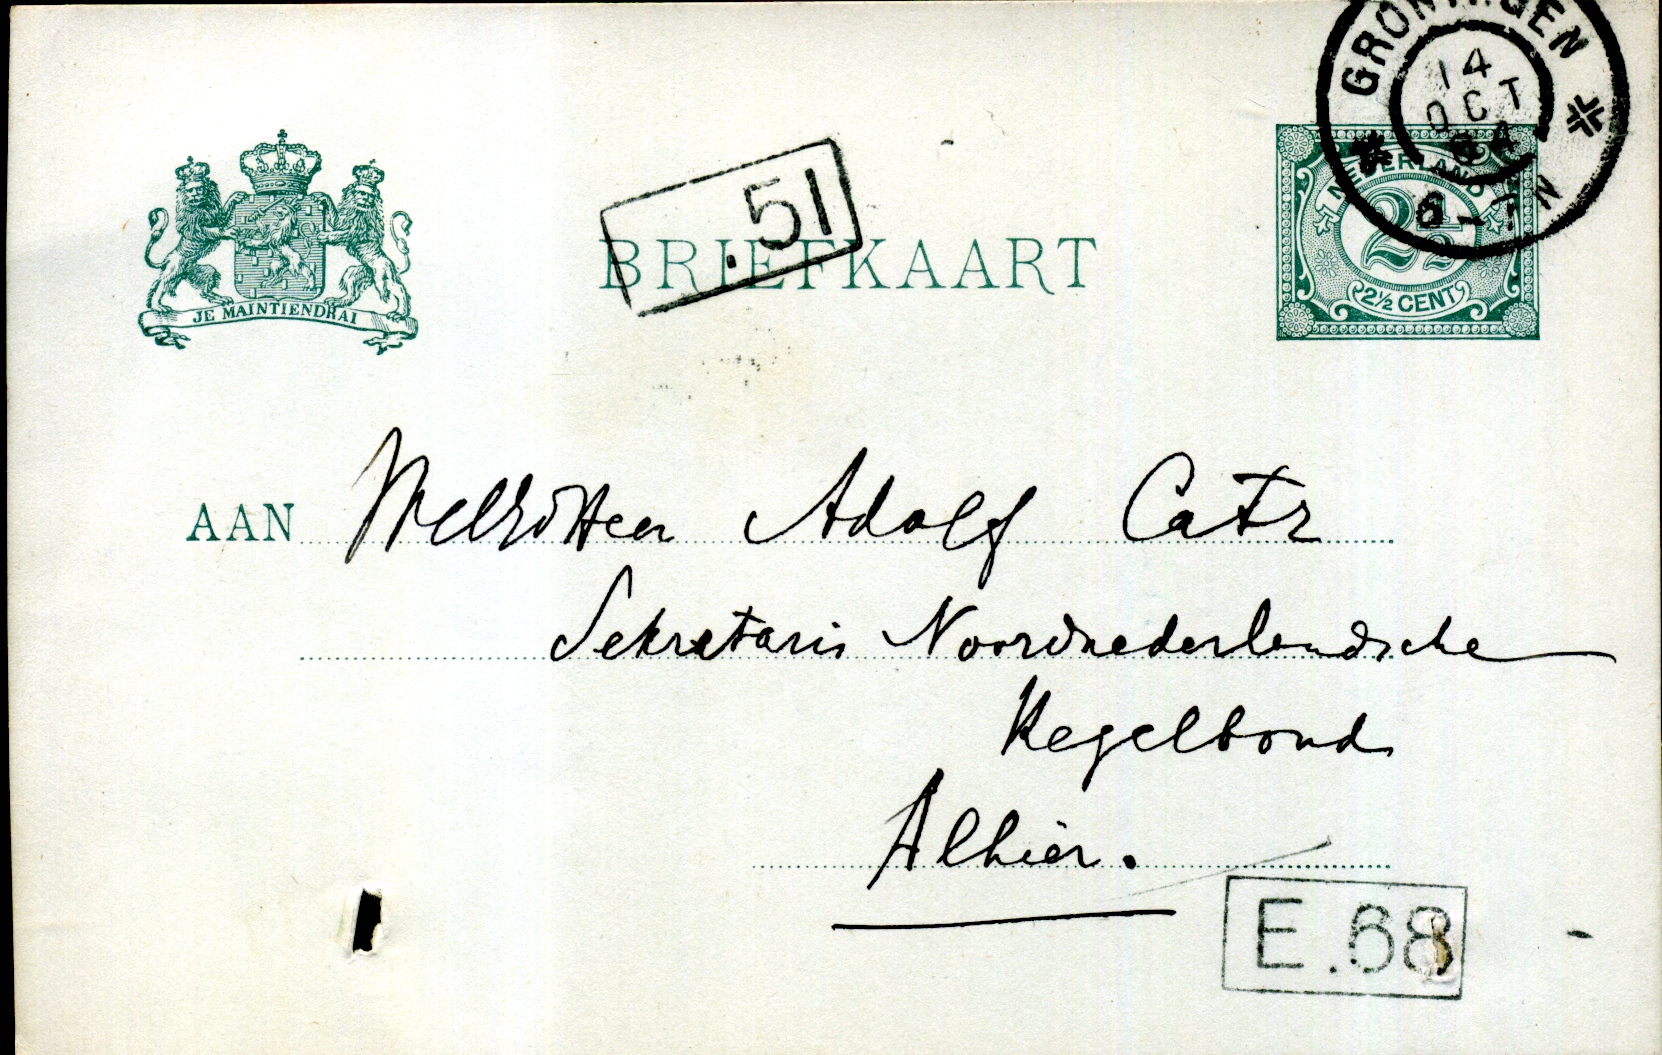 GRONINGEN
14
OCT
6-7N
NEDERLAND
2½
2½ CENT
JE MAINTIENDRAI
.51
BRIEFKAART
AAN WelEdHeer Adolf Catz
Sekretaris Noordnederlandsche
Kegelbond
Alhier.
E.68